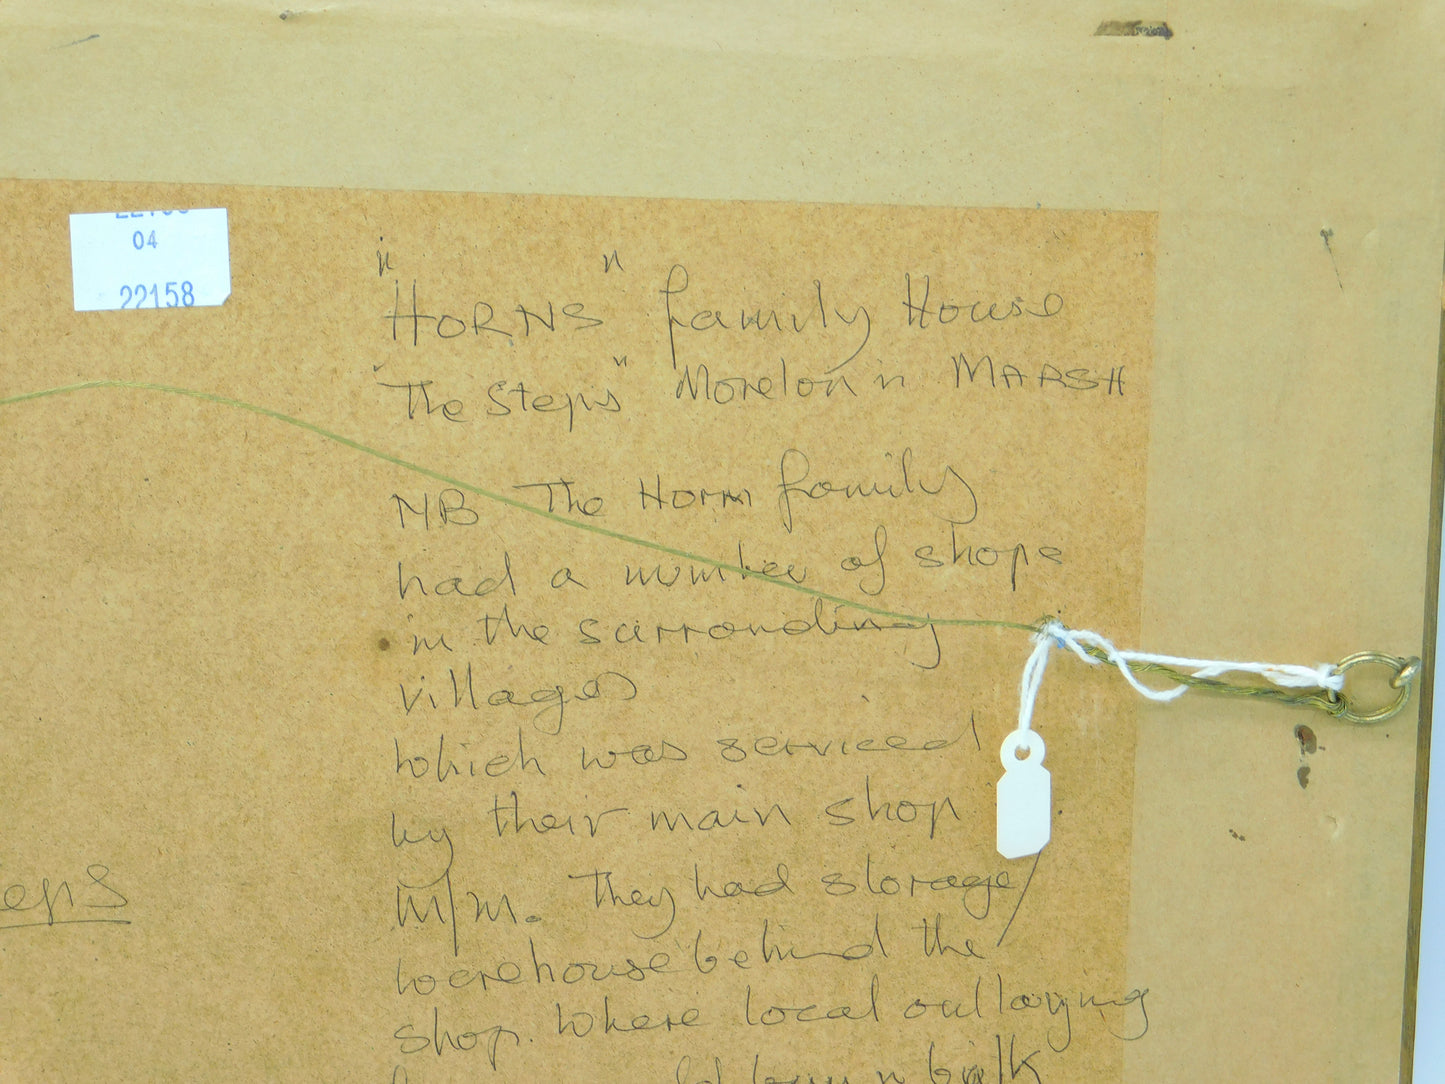 04
22158
"HORNS" family House
"The Steps" Moreton in MARSH
NB The Horn family
had a number of shops
in the surrounding
villages
which was serviced
by their main shop
M/M. They had storage/
werehouse behind the
shop. Where local outlaying
buy in bulk
eps